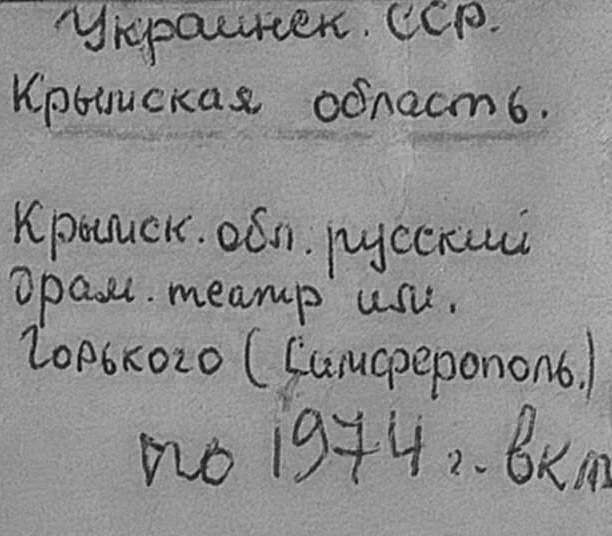 Украинск. ССР.
Крымская область.
Крымск. обл. русский
драм. театр им.
Горького (Симферополь.)
по 1974 г. вкл